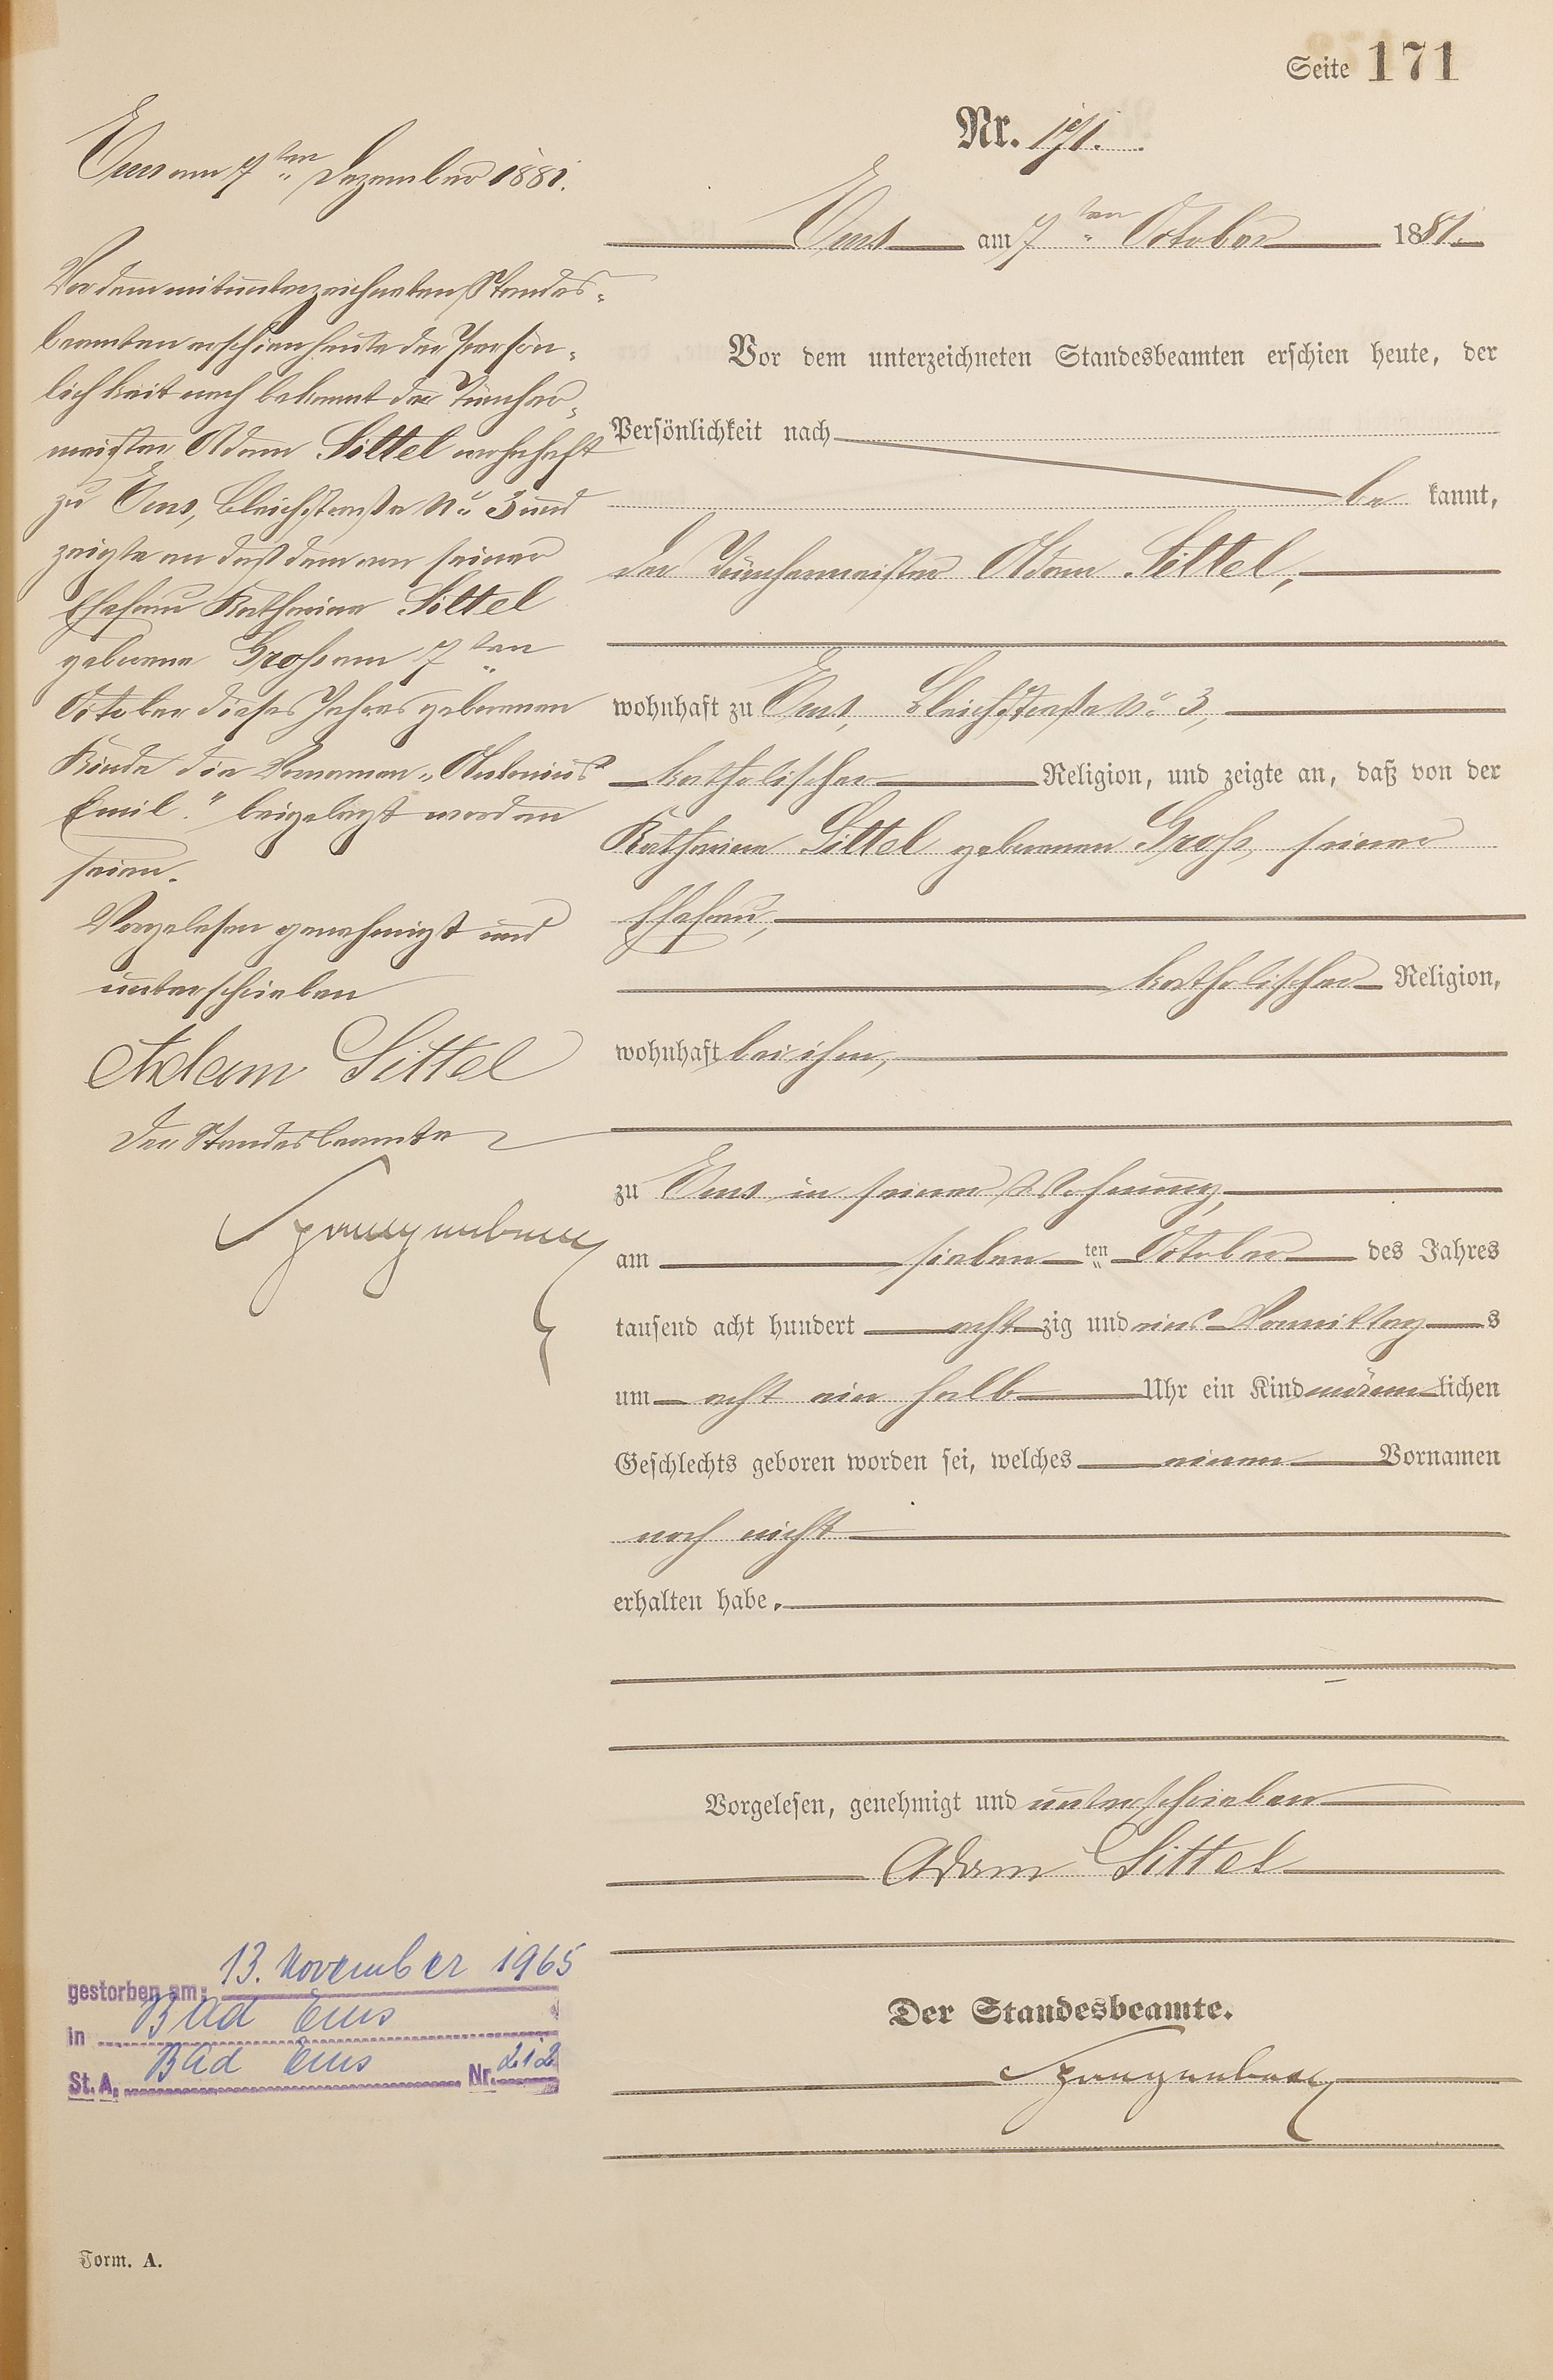 Seite 171
Nr. 171.
Ems am 7ten October 1881.
Vor dem unterzeichneten Standesbeamten erschien heute, der
Persönlichkeit nach
be kannt,
der Tünchermeister Adam Sittel,
wohnhaft zu Ems, Bleichstraße No 3,
katholischer Religion, und zeigte an, daß von der
Katharina Sittel geborenen Groß, seiner
Ehefrau,
katholischer Religion,
wohnhaft bei ihm,
zu Ems in seiner Wohnung,
am sieben ten October des Jahres
tausend acht hundert acht zig und eins Vormittag s
um acht ein halb Uhr ein Kind männ lichen
Geschlechts geboren worden sei, welches einen Vornamen
noch nicht
erhalten habe.
Vorgelesen, genehmigt und unterschrieben
Adam Sittel
Der Standesbeamte.
Spangenberg
Ems am 7ten Dezember 1881.
Vor dem mitunterzeichneten Standes-
beamten erschien heute der Persön-
lichkeit nach bekannt der Tüncher-
meister Adam Sittel wohnhaft
zu Ems, Bleichstraße No 3 und
zeigte an daß dem von seiner
Ehefrau Katharina Sittel
geborene Groß am 7ten
October dieses Jahres geborenen
Kinde die Vornamen „Antonius
Emil." beigelegt worden
seien.
Vorgelesen genehmigt und
unterschrieben
Adam Sittel
Der Standesbeamte
Spangenberg
gestorben am: 13. November 1965
in Bad Ems
St. A. Bad Ems Nr. 212
Form. A.